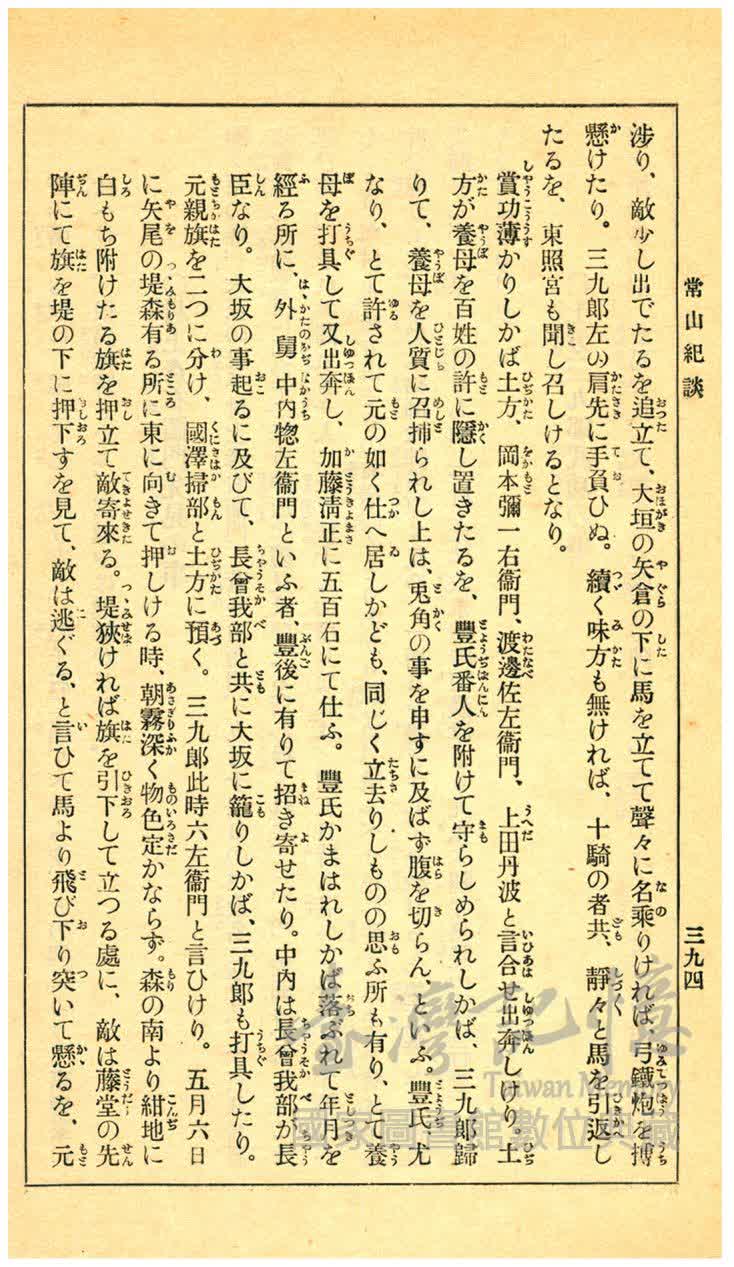 常山紀談
三九四
涉り、敵少し出でたるを追立て、大垣の矢倉の下に馬を立てて聲々に名乘りければ、弓鐵炮を搏
懸けたり。三九郎左の肩先に手負ひぬ。續く味方も無ければ、十騎の者共、靜々と馬を引返し
たるを、東照宮も聞し召しけるとなり。
賞功薄かりしかば土方、岡本彌一右衞門、渡邊佐左衞門、上田丹波と言合せ出奔しけり。土
方が養母を百姓の許に隱し置きたるを、豐氏番人を附けて守らしめられしかば、三九郎歸
りて、養母を人質に召捕られし上は、兎角の事を申すに及ばず腹を切らん、といふ。豐氏、尤
なり、とて許されて元の如く仕へ居しかども、同じく立去りしものの思ふ所も有り、とて養
母を打具して又出奔し、加藤淸正に五百石にて仕ふ。豐氏かまはれしかば落ぶれて年月を
經る所に、外舅中內惣左衞門といふ者、豐後に有りて招き寄せたり。中內は長曾我部が長
臣なり。大坂の事起るに及びて、長曾我部と共に大坂に籠りしかば、三九郎も打具したり。
元親旗を二つに分け、國澤掃部と土方に預く。三九郎此時六左衞門と言ひけり。五月六日
に矢尾の堤森有る所に東に向きて押しける時、朝霧深く物色定かならず。森の南より紺地に
白もち附けたる旗を押立て敵寄來る。堤狹ければ旗を引下して立つる處に、敵は藤堂の先
陣にて旗を堤の下に押下すを見て、敵は逃ぐる、と言ひて馬より飛び下り突いて懸るを、元
臺灣記憶
Taiwan Memory
國家圖書館數位典藏